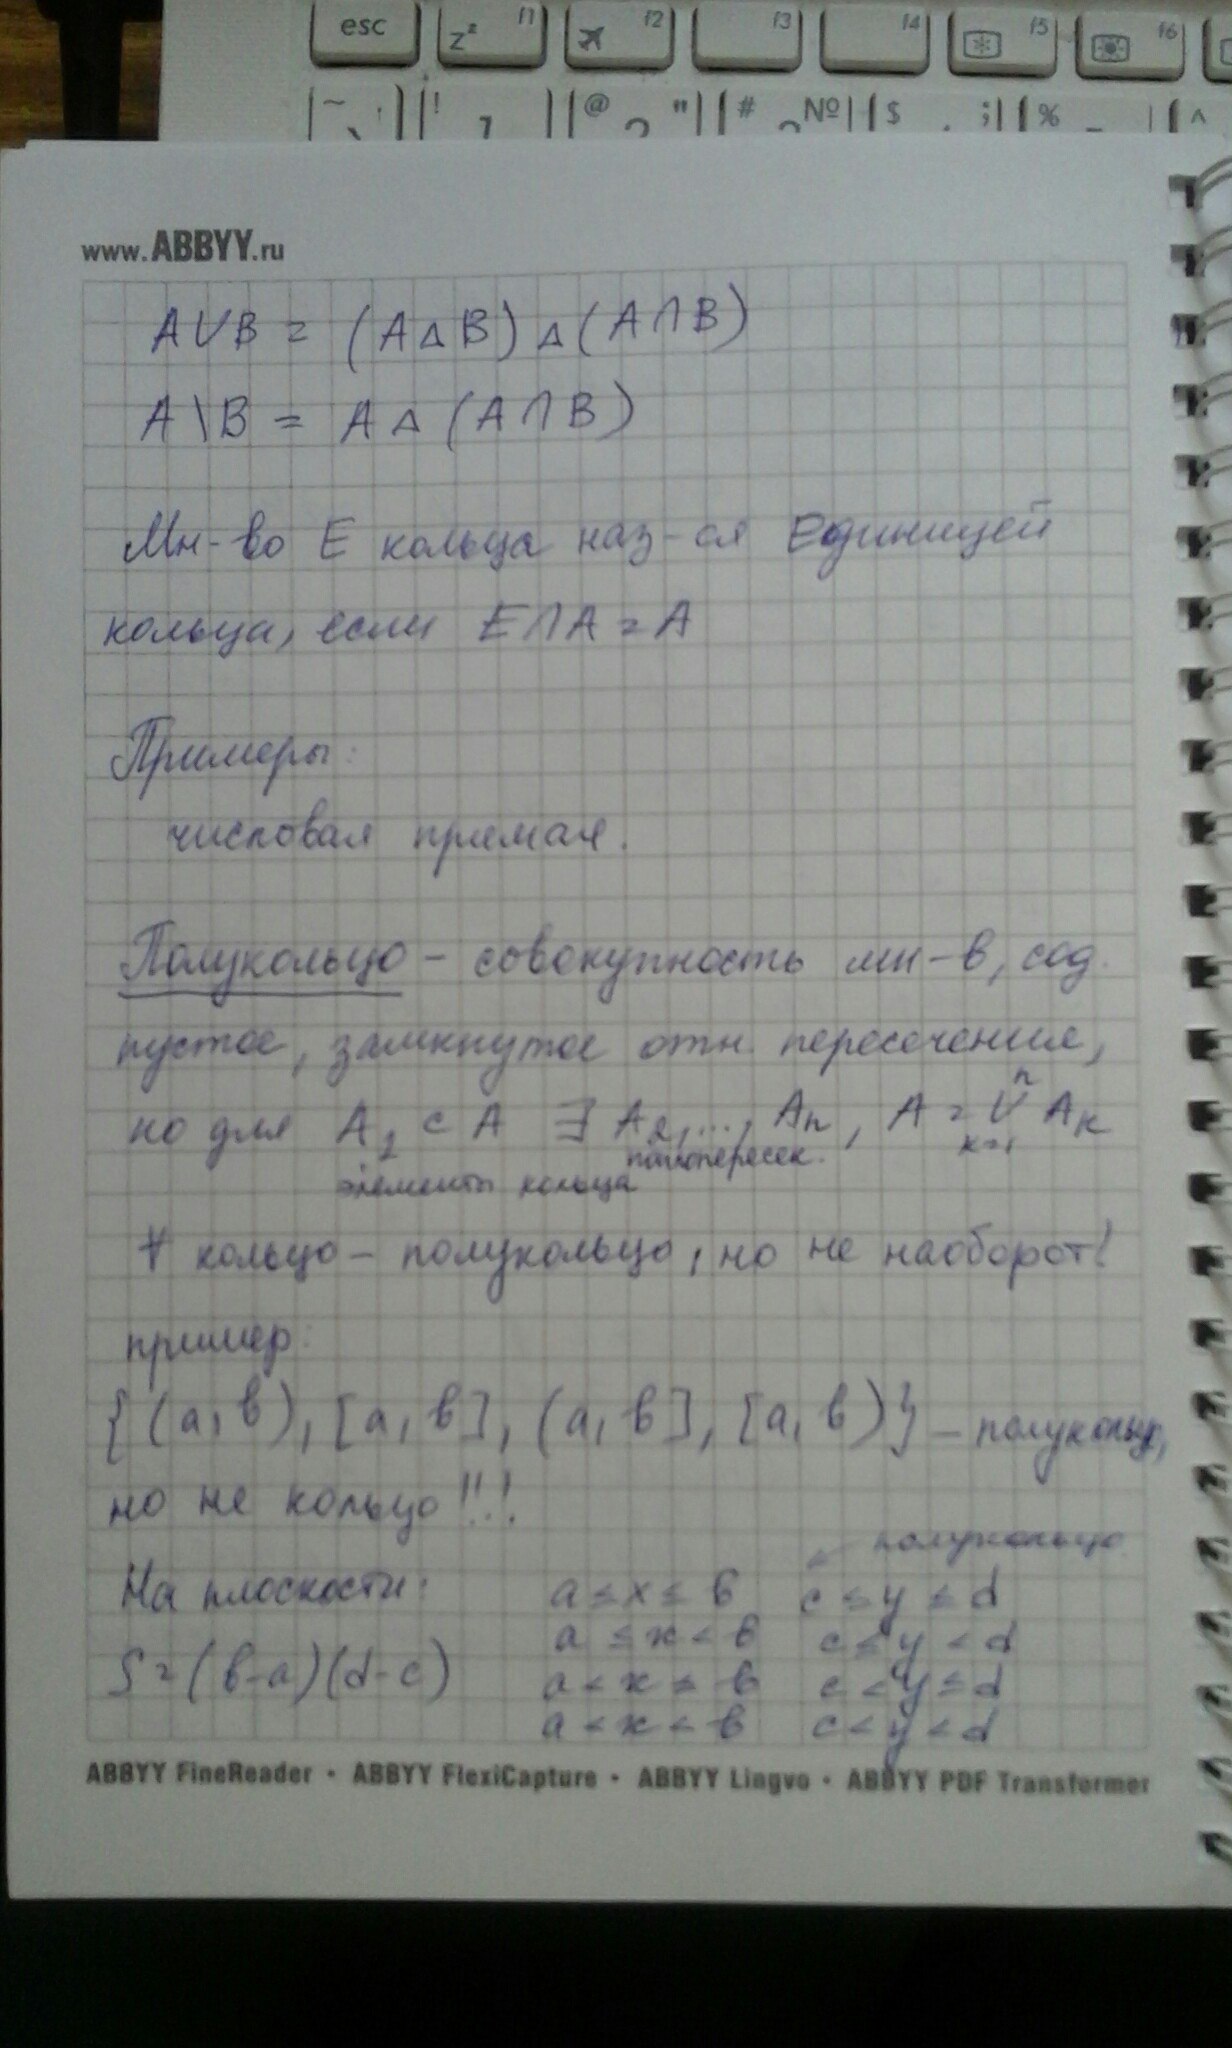 esc z² f1 f2 f3 f4 f5 f6
~ ! @ " # № $ ; % ^
www.ABBYY.ru
A∪B = (A△B)△(A∩B)
A\B = A△(A∩B)
Мн-во E кольца наз-ся Единицей
кольца, если E∩A=A
Примеры:
числовая прямая.
Полукольцо – совокупность мн-в, сод.
пустое, замкнутое отн. пересечения,
но для A₁ ⊂ A ∃ A₂,..., Aₙ, A = ∪ₖ₌₁ⁿ Aₖ
попопересек.
элементы кольца
∀ кольцо – полукольцо, но не наоборот!
пример:
{(a,b), [a,b], (a,b], [a,b)} – полукольцо,
но не кольцо!!!
полукольцо
На плоскости: a≤x≤b c≤y≤d
a≤x<b c≤y<d
S=(b-a)(d-c) a<x≤b c<y≤d
a<x<b c<y<d
ABBYY FineReader • ABBYY FlexiCapture • ABBYY Lingvo • ABBYY PDF Transformer